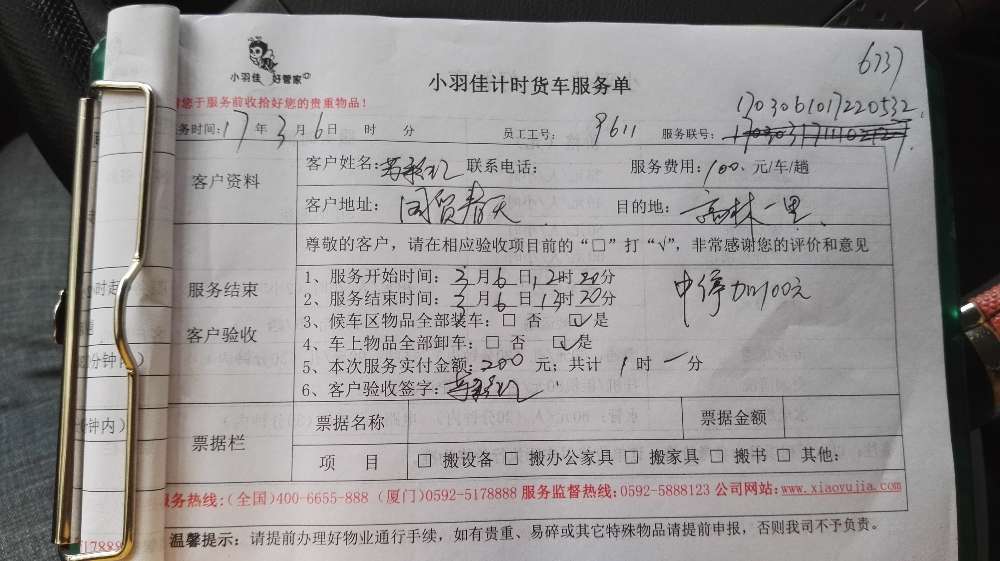 6737
小羽佳 好管家
小羽佳计时货车服务单
您于服务前收拾好您的贵重物品！
1703061017220532
务时间：17年3月6日 时 分 员工工号： 9611 服务联号：
客户资料
客户姓名： 联系电话： 服务费用：100.元/车/趟
客户地址：国贸春天 目的地：高林一里
尊敬的客户，请在相应验收项目前的“□”打“√”，非常感谢您的评价和意见
服务结束
客户验收
1、服务开始时间：3月6日12时20分
2、服务结束时间：3月6日13时20分
中停加100元
3、候车区物品全部装车：□ 否 ☑是
4、车上物品全部卸车：□ 否 ☑是
5、本次服务实付金额：200 元；共计 1 时 一 分
6、客户验收签字：
票据栏
票据名称 票据金额
项 目 □ 搬设备 □ 搬办公家具 □ 搬家具 □ 搬书 □ 其他：
服务热线：(全国)400-6655-888 (厦门)0592-5178888 服务监督热线：0592-5888123 公司网站：www.xiaoyujia.com
温馨提示：请提前办理好物业通行手续，如有贵重、易碎或其它特殊物品请提前申报，否则我司不予负责。